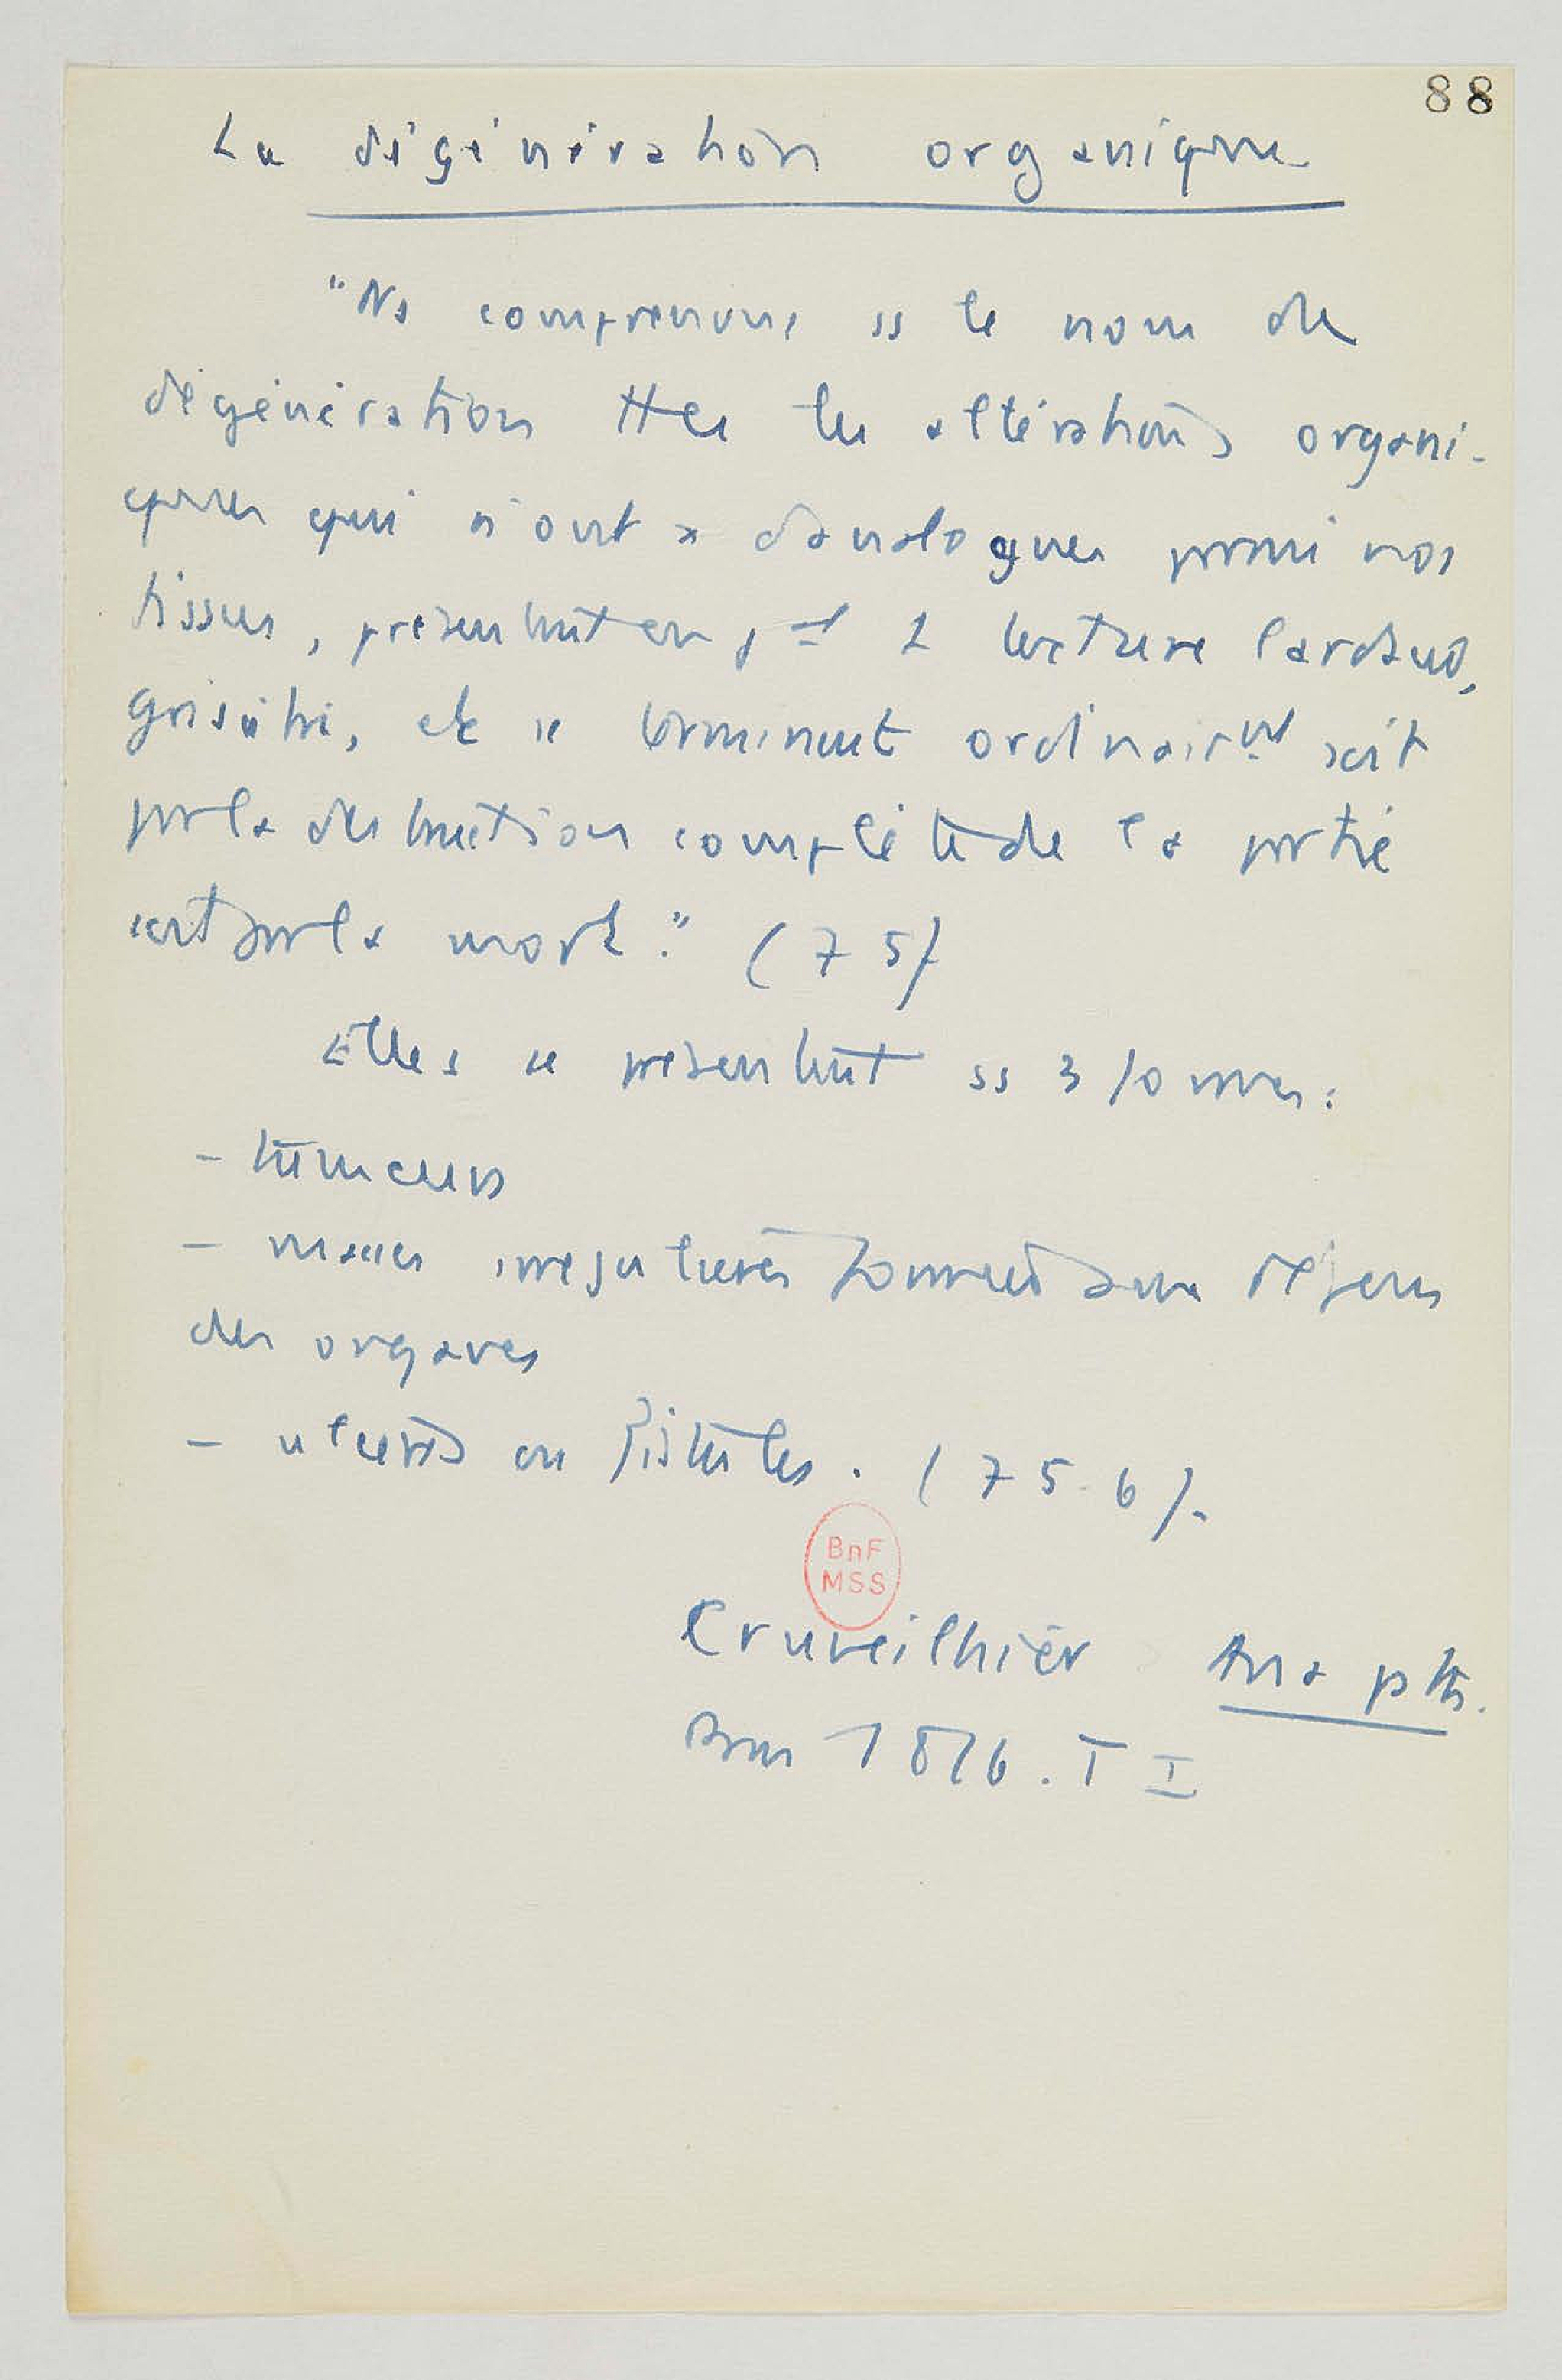 88
La dégénération organique
"Ns comprenons ss le nom de
dégénération ttes les altérations organi-
ques qui n'ont x d'analogues parmi nos
tissus, présentent en gal 1 texture lardacée,
grisâtre, etc se terminent ordinairemt soit
par la destruction complète de la partie
soit par la mort." (75)
Elles se présentent ss 3 formes:
- tumeurs
- masses irrégulières formées aux dépens
des organes
- ulcères ou fistules. (75-6).
BnF
MSS
Cruveilhier Ana pth.
Paris 1816. T I